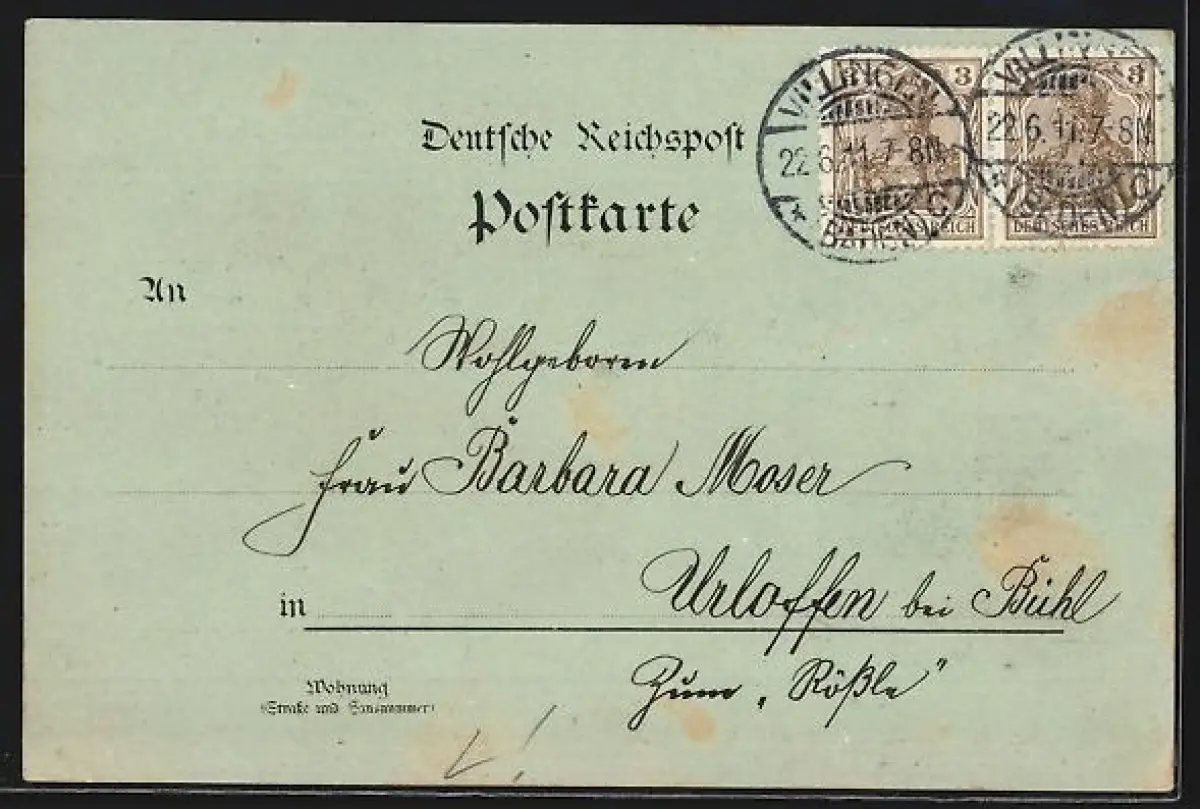 Deutsche Reichspost
Postkarte
3
3
VILLINGEN
22.6.11.7-8N.
* (BADEN) C
VILLINGEN
22.6.11.7-8N.
* (BADEN) C
DEUTSCHES REICH
DEUTSCHES REICH
An
Wohlgeboren
Frau Barbara Moser
in Urloffen bei Bühl
Zum „Rößle"
Wohnung
(Straße und Hausnummer)